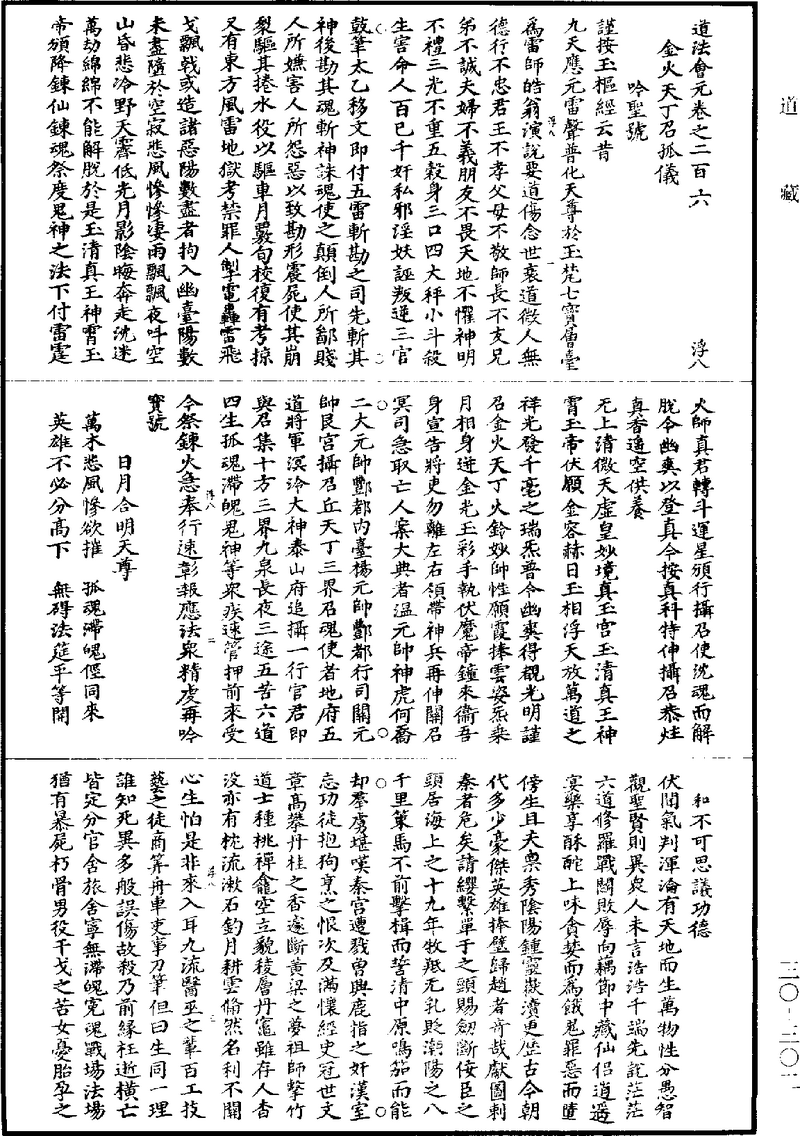 道藏
道法會元卷之二百六
浮八
金火天丁召孤儀
吟聖號
謹按玉樞經云昔
九天應元雷聲普化天尊於玉梵七寶層臺
為雷師皓翁演說要道傷念世衰道微人無
德行不忠君王不孝父母不敬師長不友兄
弟不誠夫婦不義朋友不畏天地不懼神明
不禮三光不重五穀身三口四大秤小斗殺
生害命人百己千奸私邪淫妖誣叛逆三官
鼓筆太乙移文即付五雷斬勘之司先斬其
神後勘其魂斬神誅魂使之顛倒人所鄙賤
人所嫌害人所怨惡以致勘形震屍使其崩
裂驅其捲水役以驅車月覈旬校復有考掠
又有東方風雷地獄考禁罪人掣電轟雷飛
戈飄戟或造諸惡陽數盡者拘入幽臺陽數
未盡隨於空寂悲風慘慘凄雨飄飄夜叫空
山昏悲冷野天霽低光月影陰晦奔走沈迷
萬劫綿綿不能解脫於是玉清真王神霄玉
帝頒降鍊仙鍊魂祭度鬼神之法下付雷霆
火師真君轉斗運星頒行攝召使沈魂而解
脫令幽爽以登真今按真科特伸攝召恭炷
真香遥空供養
无上清微天虛皇妙境真玉宫玉清真王神
霄玉帝伏願金容赫日玉相浮天放萬道之
祥光發千毫之瑞炁普令幽爽得覩光明謹
召金火天丁火鈴妙帥性願霞捧雲姿炁乘
月相身迸金光玉彩手執伏魔帝鐘來衞吾
身宣告將吏勿離左右領帶神兵再伸關召
冥司急取亡人案大典者溫元帥神虎何喬
二大元帥酆都內臺楊元帥酆都行司關元
帥艮宫攝召丘天丁三界召魂使者地府五
道將軍溟泠大神泰山府追攝一行官君即
與召集十方三界九泉長夜三途五苦六道
四生孤魂滯魄鬼神等衆疾速管押前來受
今祭鍊火急奉行速彰報應法衆精虔再吟
寶號
日月合明天尊
萬木悲風慘欲摧　孤魂滯魄偃同來
英雄不必分高下　無碍法筵平等開
和不可思議功德
伏聞氣判渾淪有天地而生萬物性分愚智
觀聖賢則異衆人未言浩浩千端先說茫茫
六道修羅戰鬭敗辱向藕節中藏仙侶逍遥
宴樂享酥酡上味貪婪而為餓鬼罪惡而墮
傍生且夫禀秀陰陽鍾靈嶽瀆更歷古今朝
代多少豪傑英雄捧璧歸趙者奇哉獻圖刺
秦者危矣請纓繫單于之頸賜劒斷佞臣之
頭居海上之十九年牧羝无乳貶潮陽之八
千里策馬不前擊楫而誓清中原鳴笳而能
却羣虜堪嘆秦宫遭戮曽興鹿指之奸漢室
忘功徒抱狗烹之恨次及滿懷經史冠世文
章高攀丹桂之香遽斷黄梁之夢祖師擊竹
道士種桃禪龕空立貌稜層丹竈雖存人杳
没亦有枕流漱石釣月耕雲翛然名利不關
心生怕是非來入耳九流醫巫之軰百工技
藝之徒商筭舟車吏事刀筆但曰生同一理
誰知死異多般誤傷故殺乃前縁枉逝横亡
皆定分官舍旅舍寧無滯魄寃魂戰場法場
猶有暴屍朽骨男役干戈之苦女憂胎孕之
三〇—三〇二